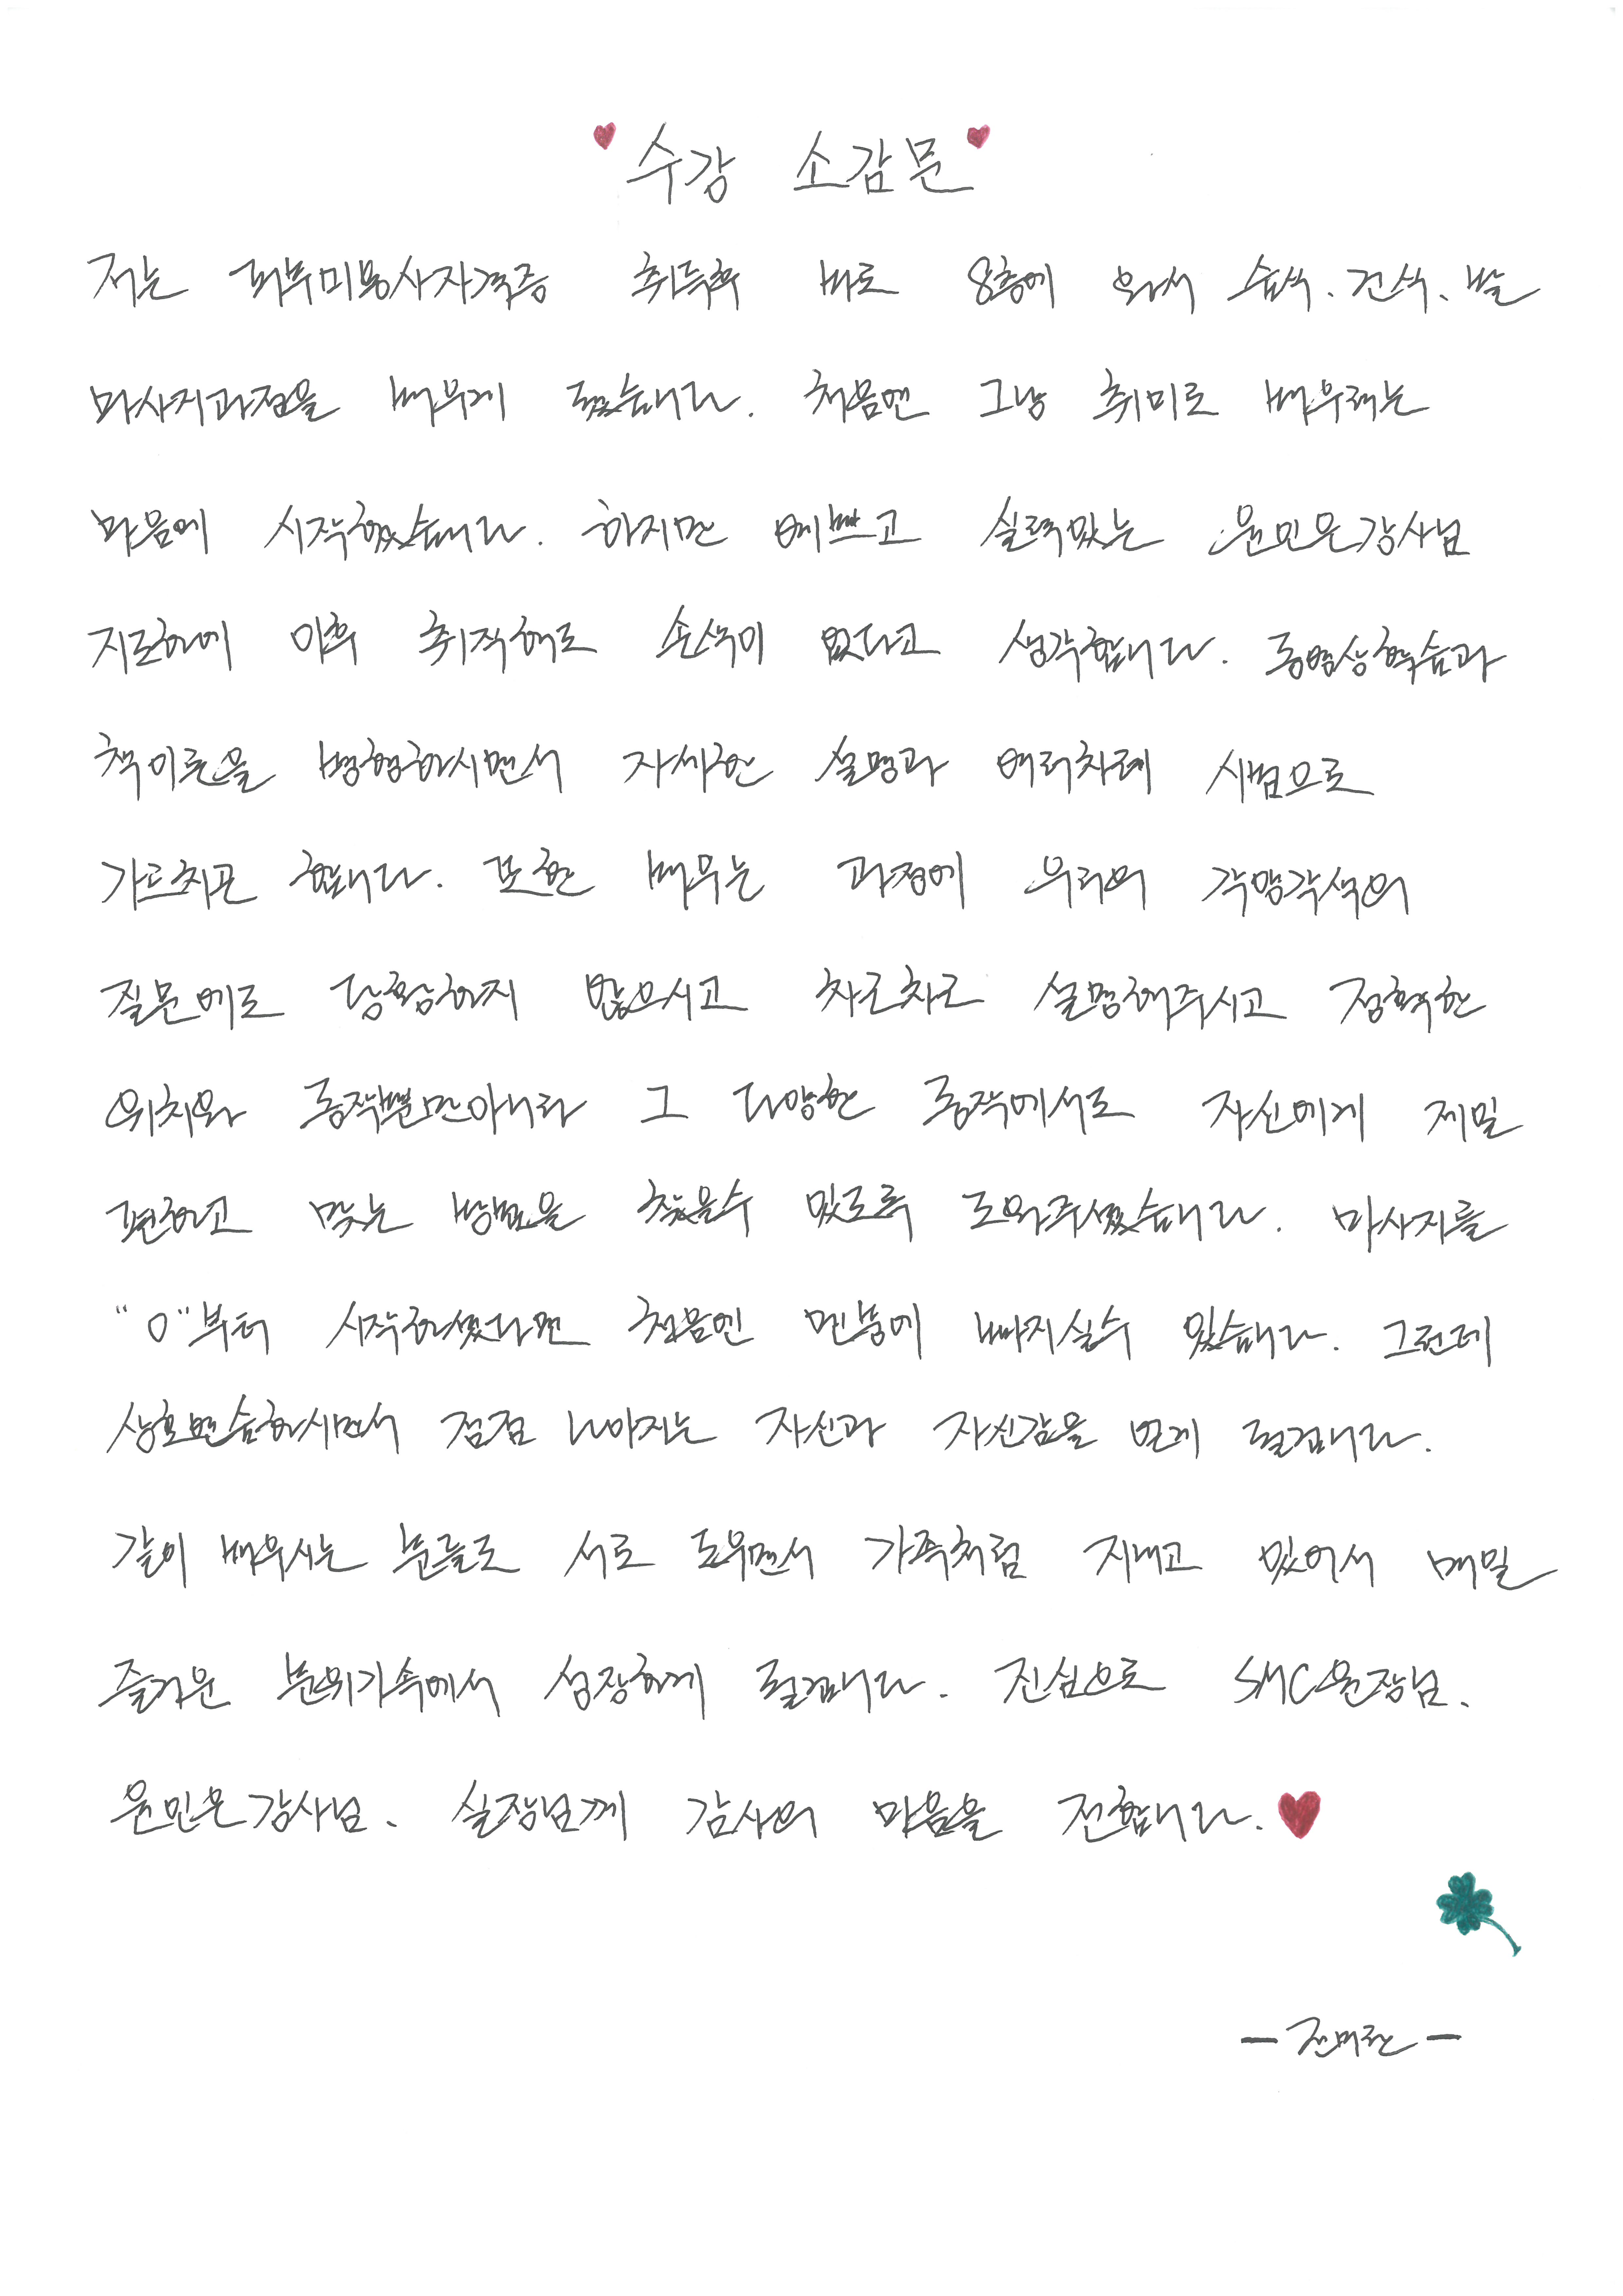 수강 소감문
저는 피부미용사자격증 취득후 바로 8층에 와서 습식. 건식. 발
마사지과정을 배우게 됬습니다. 처음엔 그냥 취미로 배우려는
마음에 시작했습니다. 하지만 예쁘고 실력있는 윤민은강사님
지도하에 이후 취직해도 손색이 없다고 생각합니다. 동영상학습과
책이론을 병행하시면서 자세한 설명과 여러차례 시범으로
가르치곤 합니다. 또한 배우는 과정에 우리의 각양각색의
질문에도 당황하지 않으시고 차근차근 설명해주시고 정확한
위치와 동작뿐만아니라 그 다양한 동작에서도 자신에게 제일
편하고 맞는 방법을 찾을수 있도록 도와주셨습니다. 마사지를
"0"부터 시작하셨다면 처음엔 멘붕에 빠지실수 있습니다. 그런데
상호연습하시면서 점점 나아지는 자신과 자신감을 얻게 될겁니다.
같이 배우시는 분들도 서로 도우면서 가족처럼 지내고 있어서 매일
즐거운 분위기속에서 성장하게 될겁니다. 진심으로 SMC원장님.
윤민은강사님. 실장님께 감사의 마음을 전합니다.
- 전미란 -